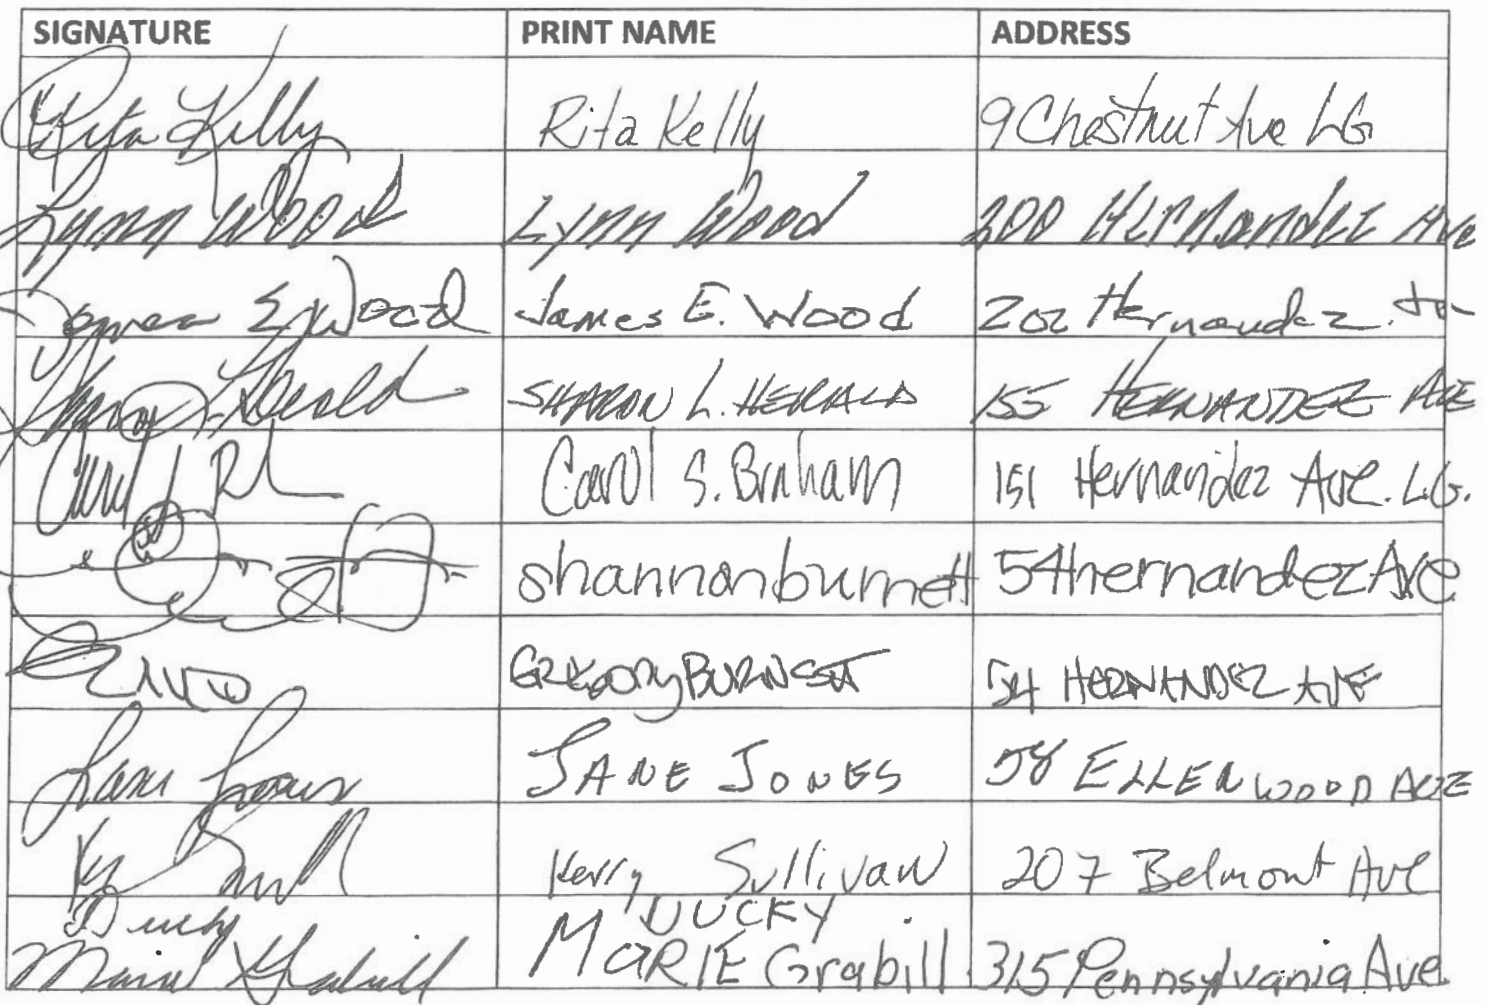 SIGNATURE PRINT NAME ADDRESS
Rita Kelly Rita Kelly 9 Chestnut Ave LG
Lynn Wood Lynn Wood 200 Hernandez Ave
James E Wood James E. Wood 202 Hernandez.
Sharon L. Herald SHARON L. HERALD 155 HERNANDEZ AVE
Carol S. 151 Hernandez Ave. L.G.
shannon burnett 54 hernandez Ave
GREGORY BURNETT 54 HERNANDEZ AVE
Jane Jones JANE JONES 58 ELLENWOOD AVE
Kerry Sullivan 207 Belmont Ave
Ducky DUCKY
Marie Grabill MARIE Grabill 315 Pennsylvania Ave.